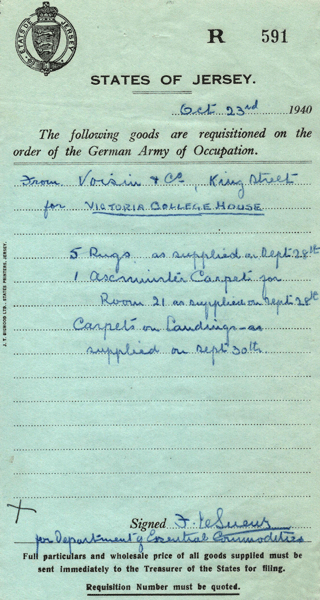 STATES OF JERSEY
R 591
STATES OF JERSEY.
Oct 23rd 1940
The following goods are requisitioned on the
order of the German Army of Occupation.
From Voisin & Co, King Street
for VICTORIA COLLEGE HOUSE
5 Rugs as supplied on Sept 28th
1 Axminster Carpet for
Room 21 as supplied on Sept 28th
Carpets on Landings – as
supplied on Sept 30th.
Signed F. Le
for Department of Essential Commodities
Full particulars and wholesale price of all goods supplied must be
sent immediately to the Treasurer of the States for filing.
Requisition Number must be quoted.
LTD., STATES PRINTERS, JERSEY.